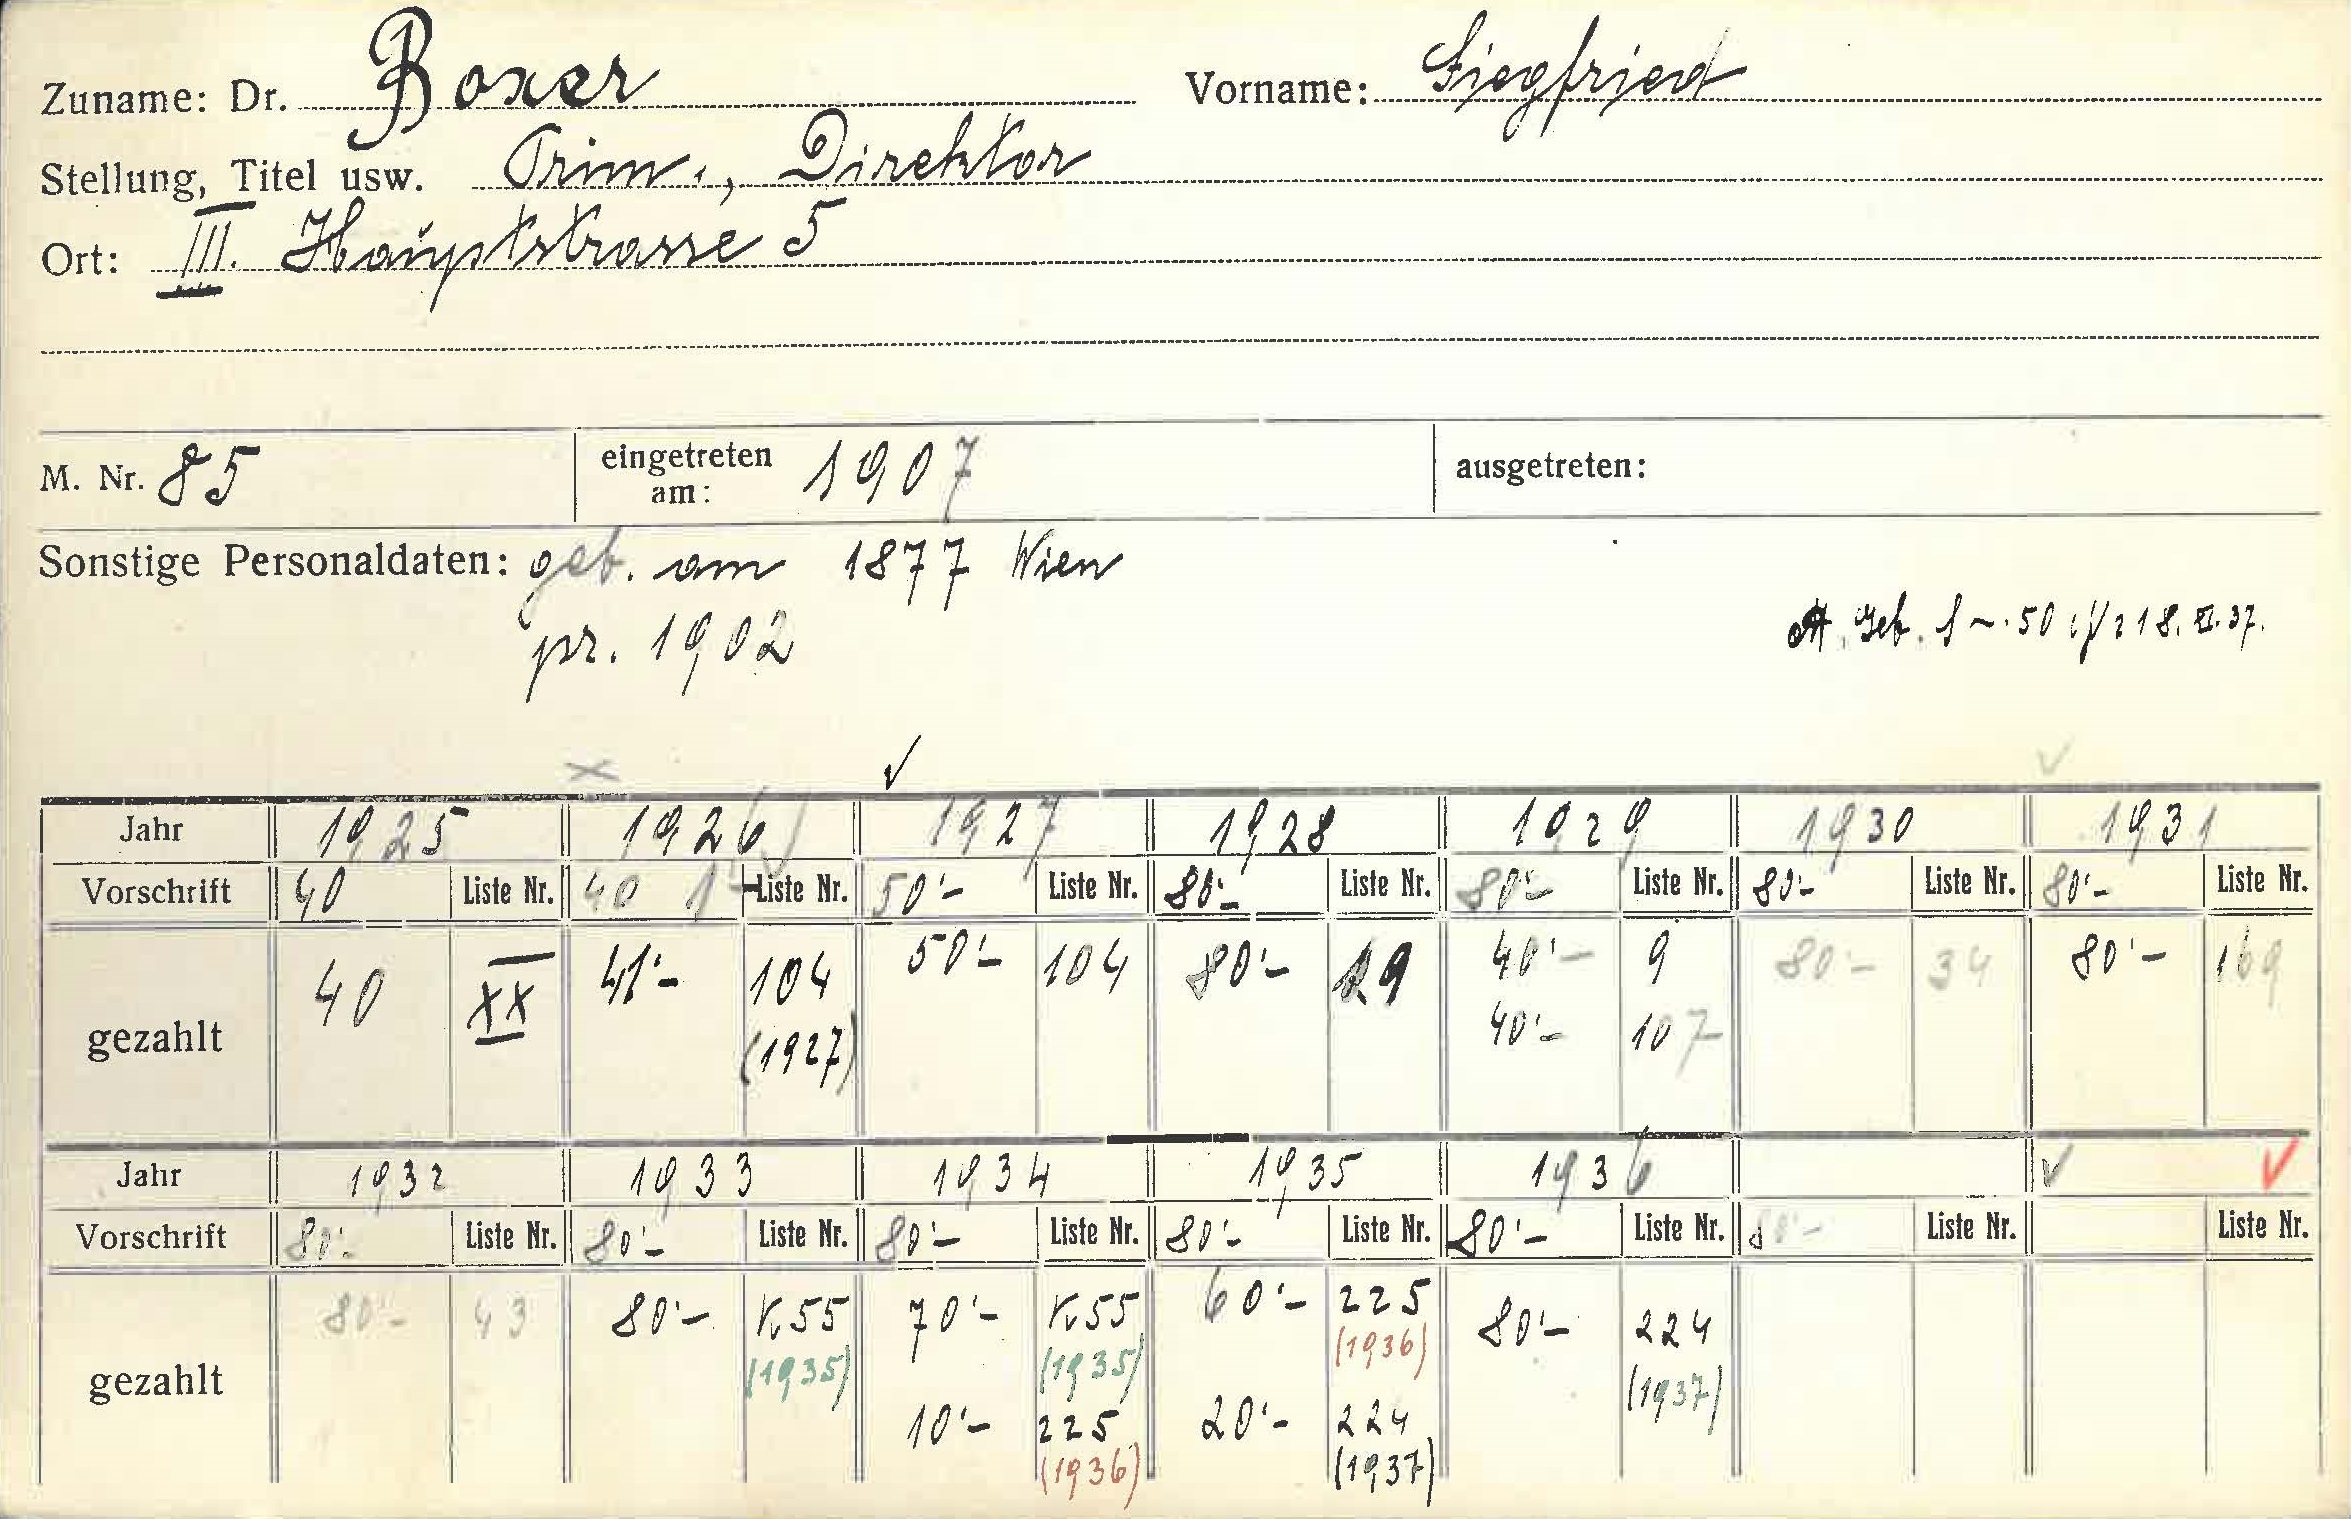 Zuname: Dr. Boxer Vorname: Siegfried
Stellung, Titel usw. Prim., Direktor
Ort: III. Hauptstrasse 5
M. Nr. 85 eingetreten am: 1907 ausgetreten:
Sonstige Personaldaten: geb. am 1877 Wien
pr. 1902
Geb. 50 18. 37.
Jahr 1925 1926 1927 1928 1929 1930 1931
Vorschrift 40 Liste Nr. 40 Liste Nr. 50'- Liste Nr. 80'- Liste Nr. 80'- Liste Nr. 80'- Liste Nr. 80'- Liste Nr.
gezahlt 40 XX 41'- 104 50'- 104 80'- 19 40'- 9 80'- 34 80'- 169
(1927) 40'- 107
Jahr 1932 1933 1934 1935 1936
Vorschrift 80'- Liste Nr. 80'- Liste Nr. 80'- Liste Nr. 80'- Liste Nr. 80'- Liste Nr. 80'- Liste Nr. Liste Nr.
gezahlt 80'- 43 80'- K55 70'- K55 60'- 225 80'- 224
(1935) (1935) (1936) (1937)
10'- 225 20'- 224
(1936) (1937)